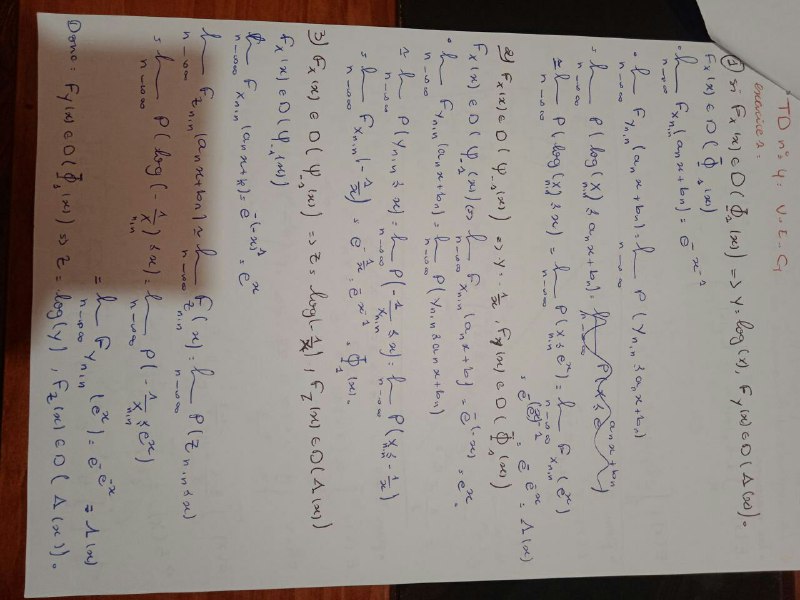 TD n° 4: V.E.G
exercice 2:
① si Fₓ(x) ∈ D(Φ₁(x)) => Y = log(x), F_Y(x) ∈ D(Λ(x)).
Fₓ(x) ∈ D(Φ₁(x))
• lim_{n→∞} F_{X_{n,n}}(aₙx + bₙ) = e^{-x^{-1}}
• lim_{n→∞} F_{Y_{n,n}}(aₙx + bₙ) = lim_{n→∞} P(Y_{n,n} ≤ aₙx + bₙ)
= lim_{n→∞} P(log(X) ≤ aₙx + bₙ) =
= lim_{n→∞} P(log(X_{n,n}) ≤ x) = lim_{n→∞} P(X ≤ e^x) = lim_{n→∞} F_{X_{n,n}}(e^x)
= e^{-(e^x)^{-1}} = e^{-e^{-x}} = Λ(x)
2) Fₓ(x) ∈ D(Ψ₋₁(x)) => Y = -1/x, F_Y(x) ∈ D(Φ₁(x))
Fₓ(x) ∈ D(Ψ₋₁(x)) <=> lim_{n→∞} F_{X_{n,n}}(aₙx + bₙ) = e^{-(-x)} = e^x.
• lim_{n→∞} F_{Y_{n,n}}(aₙx + bₙ) = lim_{n→∞} P(Y_{n,n} ≤ aₙx + bₙ)
= lim_{n→∞} P(Y_{n,n} ≤ x) = lim_{n→∞} P(-1/X_{n,n} ≤ x) = lim_{n→∞} P(X_{n,n} ≤ -1/x)
= lim_{n→∞} F_{X_{n,n}}(-1/x) = e^{-1/x} = e^{-x^{-1}} = Φ₁(x).
3) Fₓ(x) ∈ D(Ψ₋₁(x)) => Z = log(-1/x), F_Z(x) ∈ D(Λ(x))
Fₓ(x) ∈ D(Ψ₋₁(x))
lim_{n→∞} F_{X_{n,n}}(aₙx + bₙ) = e^{-(-x)^1} = e^x
lim_{n→∞} F_{Z_{n,n}}(aₙx + bₙ) = lim_{n→∞} F_{Z_{n,n}}(x) = lim_{n→∞} P(Z_{n,n} ≤ x)
= lim_{n→∞} P(log(-1/X_{n,n}) ≤ x) = lim_{n→∞} P(-1/X_{n,n} ≤ e^x)
= lim_{n→∞} F_{Y_{n,n}}(e^x) = e^{-e^{-x}} = Λ(x)
Donc: F_Y(x) ∈ D(Φ₁(x)) => Z = log(y), F_Z(x) ∈ D(Λ(x)).